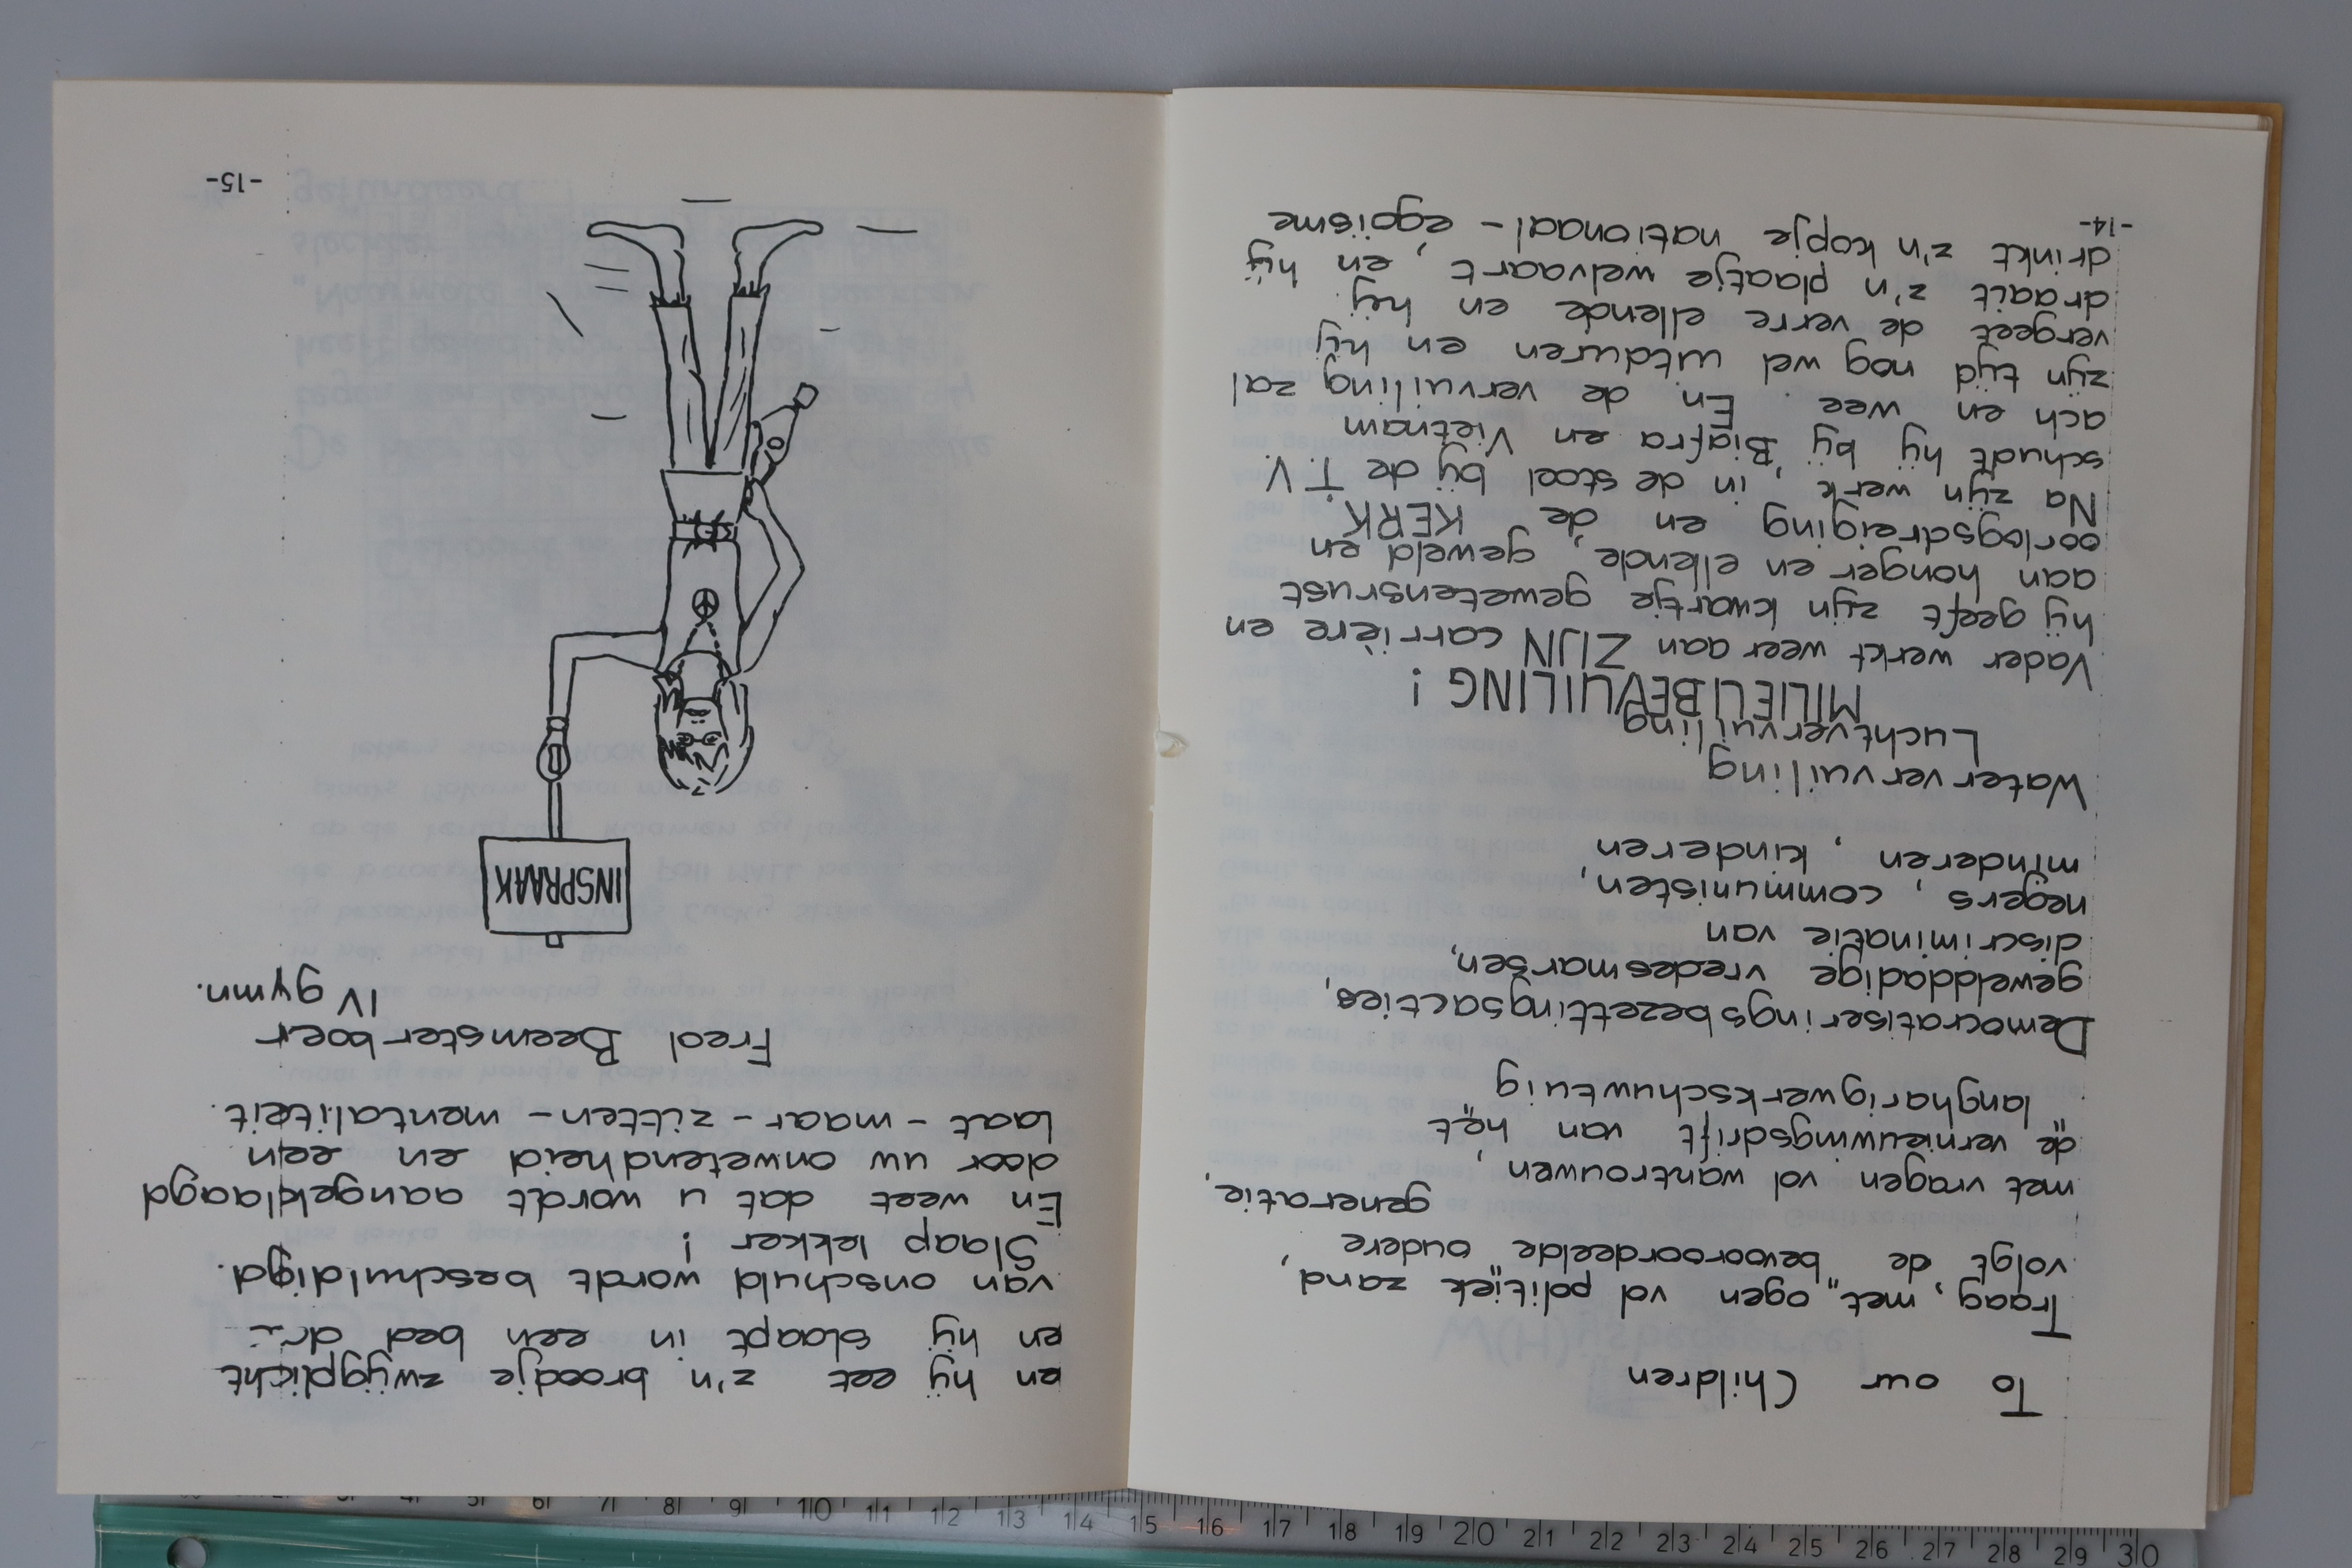 To our Children
Traag, met „ogen vol politiek zand,
volgt de „bevooroordeelde" oudere
generatie,
met vragen vol wantrouwen,
de vernieuwingsdrift van het
„langharigwerkschuwtuig"
Democratiseringsbezettingsacties,
gewelddadige vredesmarsen,
discriminatie van
negers, communisten,
minderen, kinderen
Watervervuiling
Luchtvervuiling
MILIEUBEVUILING!
Vader werkt weer aan ZIJN carrière en
hij geeft zijn kwartje gewetensrust
aan honger en ellende, geweld en
oorlogsdreiging en de KERK
Na zijn werk, in de stoel bij de T.V.
schudt hij bij Biafra en Vietnam
ach en wee. En de vervuiling zal
zijn tijd nog wel uitduren en hij
vergeet de verre ellende en hij
draait z'n plaatje welvaart, en hij
drinkt z'n kopje nationaal-egoïsme
-14-
en hij eet z'n broodje zwijgplicht
en hij slaapt in een bed dr
van onschuld wordt beschuldigd.
Slaap lekker!
En weet dat u wordt aangeklaagd
door uw onwetendheid en een
laat-maar-zitten-mentaliteit.
Fred Beemsterboer
IV gymn.
INSPRAAK
-15-
5 6 7 8 9 10 11 12 13 14 15 16 17 18 19 20 21 22 23 24 25 26 27 28 29 30